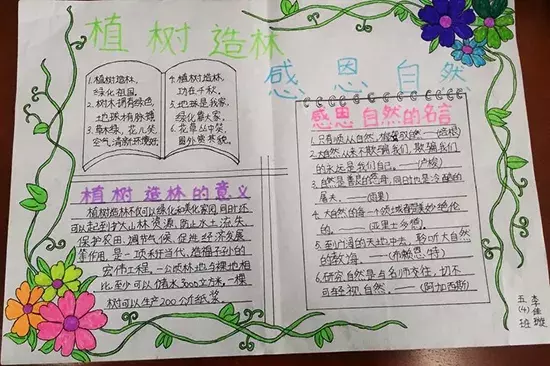 植树造林
感恩自然
1.植树造林,
绿化祖国。
2.树木拥有绿色,
地球才有脉搏
3.草木绿,花儿笑,
空气清新环境好
4.植树造林,
功在千秋。
5.地球是我家,
绿化靠大家。
6.花草丛中笑,
园外赏其貌
植树造林的意义
植树造林不仅可以绿化和美化家园,同时还
可以起到扩大山林资源,防止水土流失,
保护农田,调节气候,促进经济发展
等作用,是一项利于当代、造福子孙的
宏伟工程。一公顷林地与裸地相
比至少可以储水3000立方米。一棵
树可以生产200公斤纸浆
感恩自然的名言
1.只有顺从自然,才能驾驭自然。——(培根)
2.大自然从来不欺骗我们,欺骗我们
的永远是我们自己。——(卢梭)
3.自然是善良的慈母,同时也是冷酷的
屠夫。——(雨果)
4.大自然的每一个领域都是美妙绝伦
的。——(亚里士多德)
5.到广漠的天地中去,聆听大自然
的教诲。——(布赖恩特)
6.研究自然是与名师交往,切不
可轻视自然。——(阿加西斯)
五(4)班
李佳璇